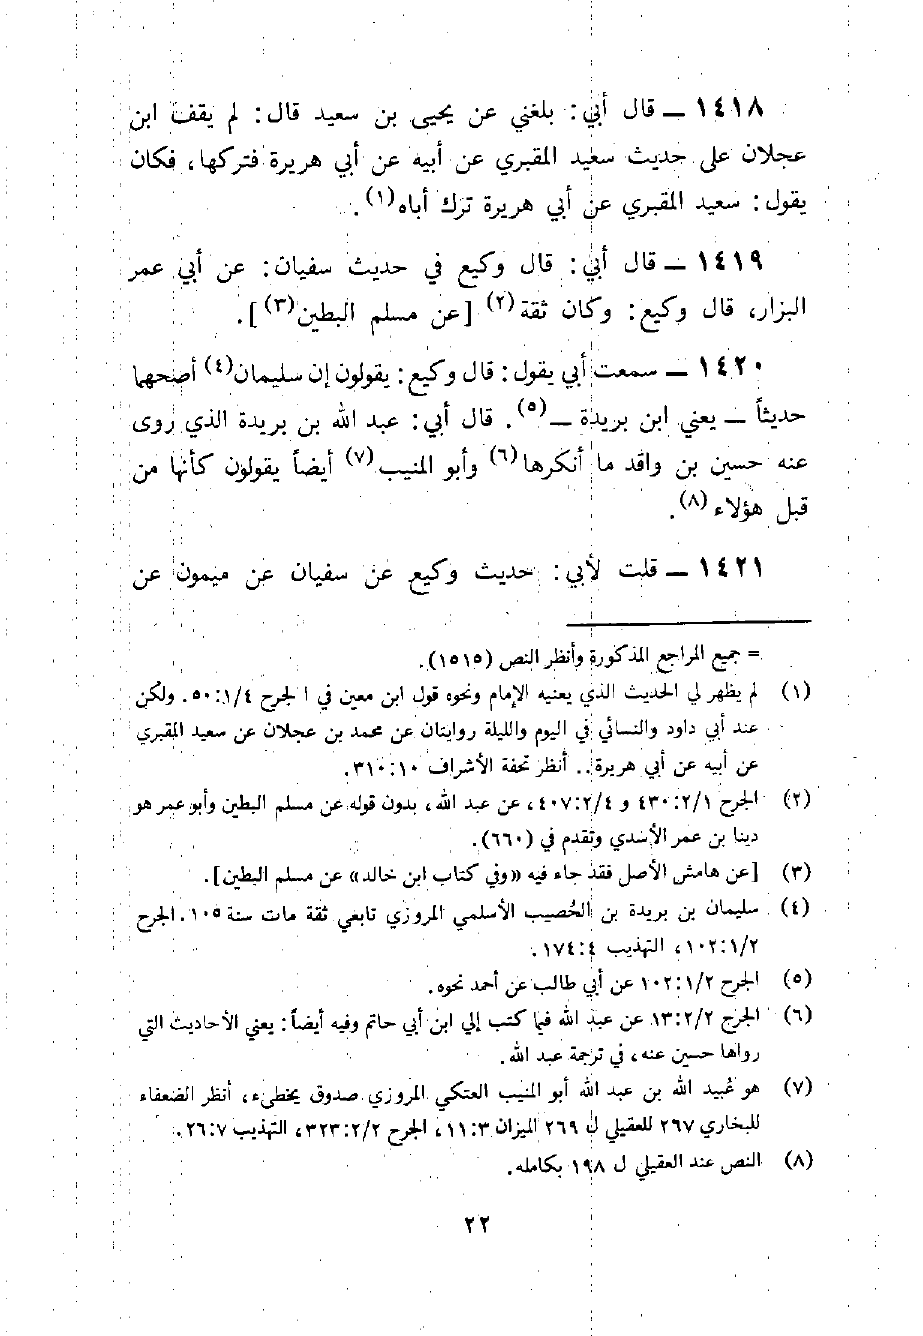 ١٤١٨ ـ قال أبي: بلغني عن يحيى بن سعيد قال: لم يقف ابن
عجلان على حديث سعيد المقبري عن أبيه عن أبي هريرة فتركها، فكان
يقول: سعيد المقبري عن أبي هريرة ترك أباه (١).
١٤١٩ ـ قال أبي: قال وكيع في حديث سفيان: عن أبي عمر
البزار، قال وكيع: وكان ثقة (٢) [عن مسلم البطين (٣)].
١٤٢٠ ـ سمعت أبي يقول: قال وكيع: يقولون إن سليمان (٤) أصحهما
حديثاً ـ يعني ابن بريدة ـ (٥). قال أبي: عبد الله بن بريدة الذي روى
عنه حسين بن واقد ما أنكرها (٦) وأبو المنيب (٧) أيضاً يقولون كأنها من
قبل هؤلاء (٨).
١٤٢١ ـ قلت لأبي: حديث وكيع عن سفيان عن ميمون عن
= جميع المراجع المذكورة وأنظر النص (١٥١٥).
(١) لم يظهر لي الحديث الذي يعنيه الإمام ونحوه قول ابن معين في ا لجرح ٥٠:١/٤. ولكن
عند أبي داود والنسائي في اليوم والليلة روايتان عن محمد بن عجلان عن سعيد المقبري
عن أبيه عن أبي هريرة.. أنظر تحفة الأشراف ٣١٠:١٠.
(٢) الجرح ٤٣٠:٢/١ و ٤٠٧:٢/٤، عن عبد الله، بدون قوله عن مسلم البطين وأبو عمر هو
دينا بن عمر الأسدي وتقدم في (٦٦٠).
(٣) [عن هامش الأصل فقد جاء فيه «وفي كتاب ابن خالد» عن مسلم البطين].
(٤) سليمان بن بريدة بن الحُصيب الأسلمي المروزي تابعي ثقة مات سنة ١٠٥. الجرح
١٠٢:١/٢، التهذيب ١٧٤:٤.
(٥) الجرح ١٠٢:١/٢ عن أبي طالب عن أحمد نحوه.
(٦) الجرح ١٣:٢/٢ عن عبد الله فيما كتب إلي ابن أبي حاتم وفيه أيضاً: يعني الأحاديث التي
رواها حسين عنه، في ترجمة عبد الله.
(٧) هو عُبيد الله بن عبد الله أبو المنيب العتكي المروزي صدوق يخطىء، أنظر الضعفاء
للبخاري ٢٦٧ للعقيلي ل ٢٦٩ الميزان ١١:٣، الجرح ٣٢٣:٢/٢، التهذيب ٢٦:٧.
(٨) النص عند العقيلي ل ١٩٨ بكامله.
٢٢